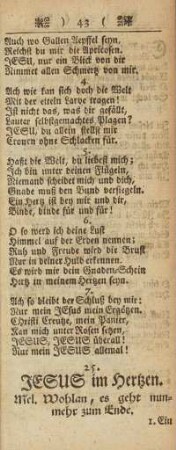 ) 43 (
Auch wo Gallen Aepffel seyn.
Reichst du mir die Apricosen.
JESU, nur ein Blick von dir
Nimmet allen Schmertz von mir.
4.
Ach wie kan sich doch die Welt
Mit der eiteln Larve tragen!
Ist nicht das, was ihr gefällt,
Lauter selbstgemachtes Plagen?
JESU, du allein stellst mir
Cronen ohne Schlacken für.
5.
Haßt die Welt, du liebest mich;
Ich bin unter deinen Flügeln.
Niemand scheidet mich und dich,
Gnade muß den Bund versiegeln.
Ein Hertz ist bey mir und dir,
Binde, binde für und für!
6.
O so werd ich deine Lust
Himmel auf der Erden nennen;
Ruh und Freude wird die Brust
Nur in deiner Huld erkennen.
Es wird mir dein Gnaden-Schein
Hertz in meinem Hertzen seyn.
7.
Ach so bleibt der Schluß bey mir:
Nur mein JEsus mein Ergötzen.
Christi Creutze, mein Panier,
Man mich unter Rosen setzen,
JESUS, JESUS überall!
Nur mein JESUS allemal!
25.
JESUS im Hertzen.
Mel. Wohlan, es geht nun-
mehr zum Ende.
1. Ein